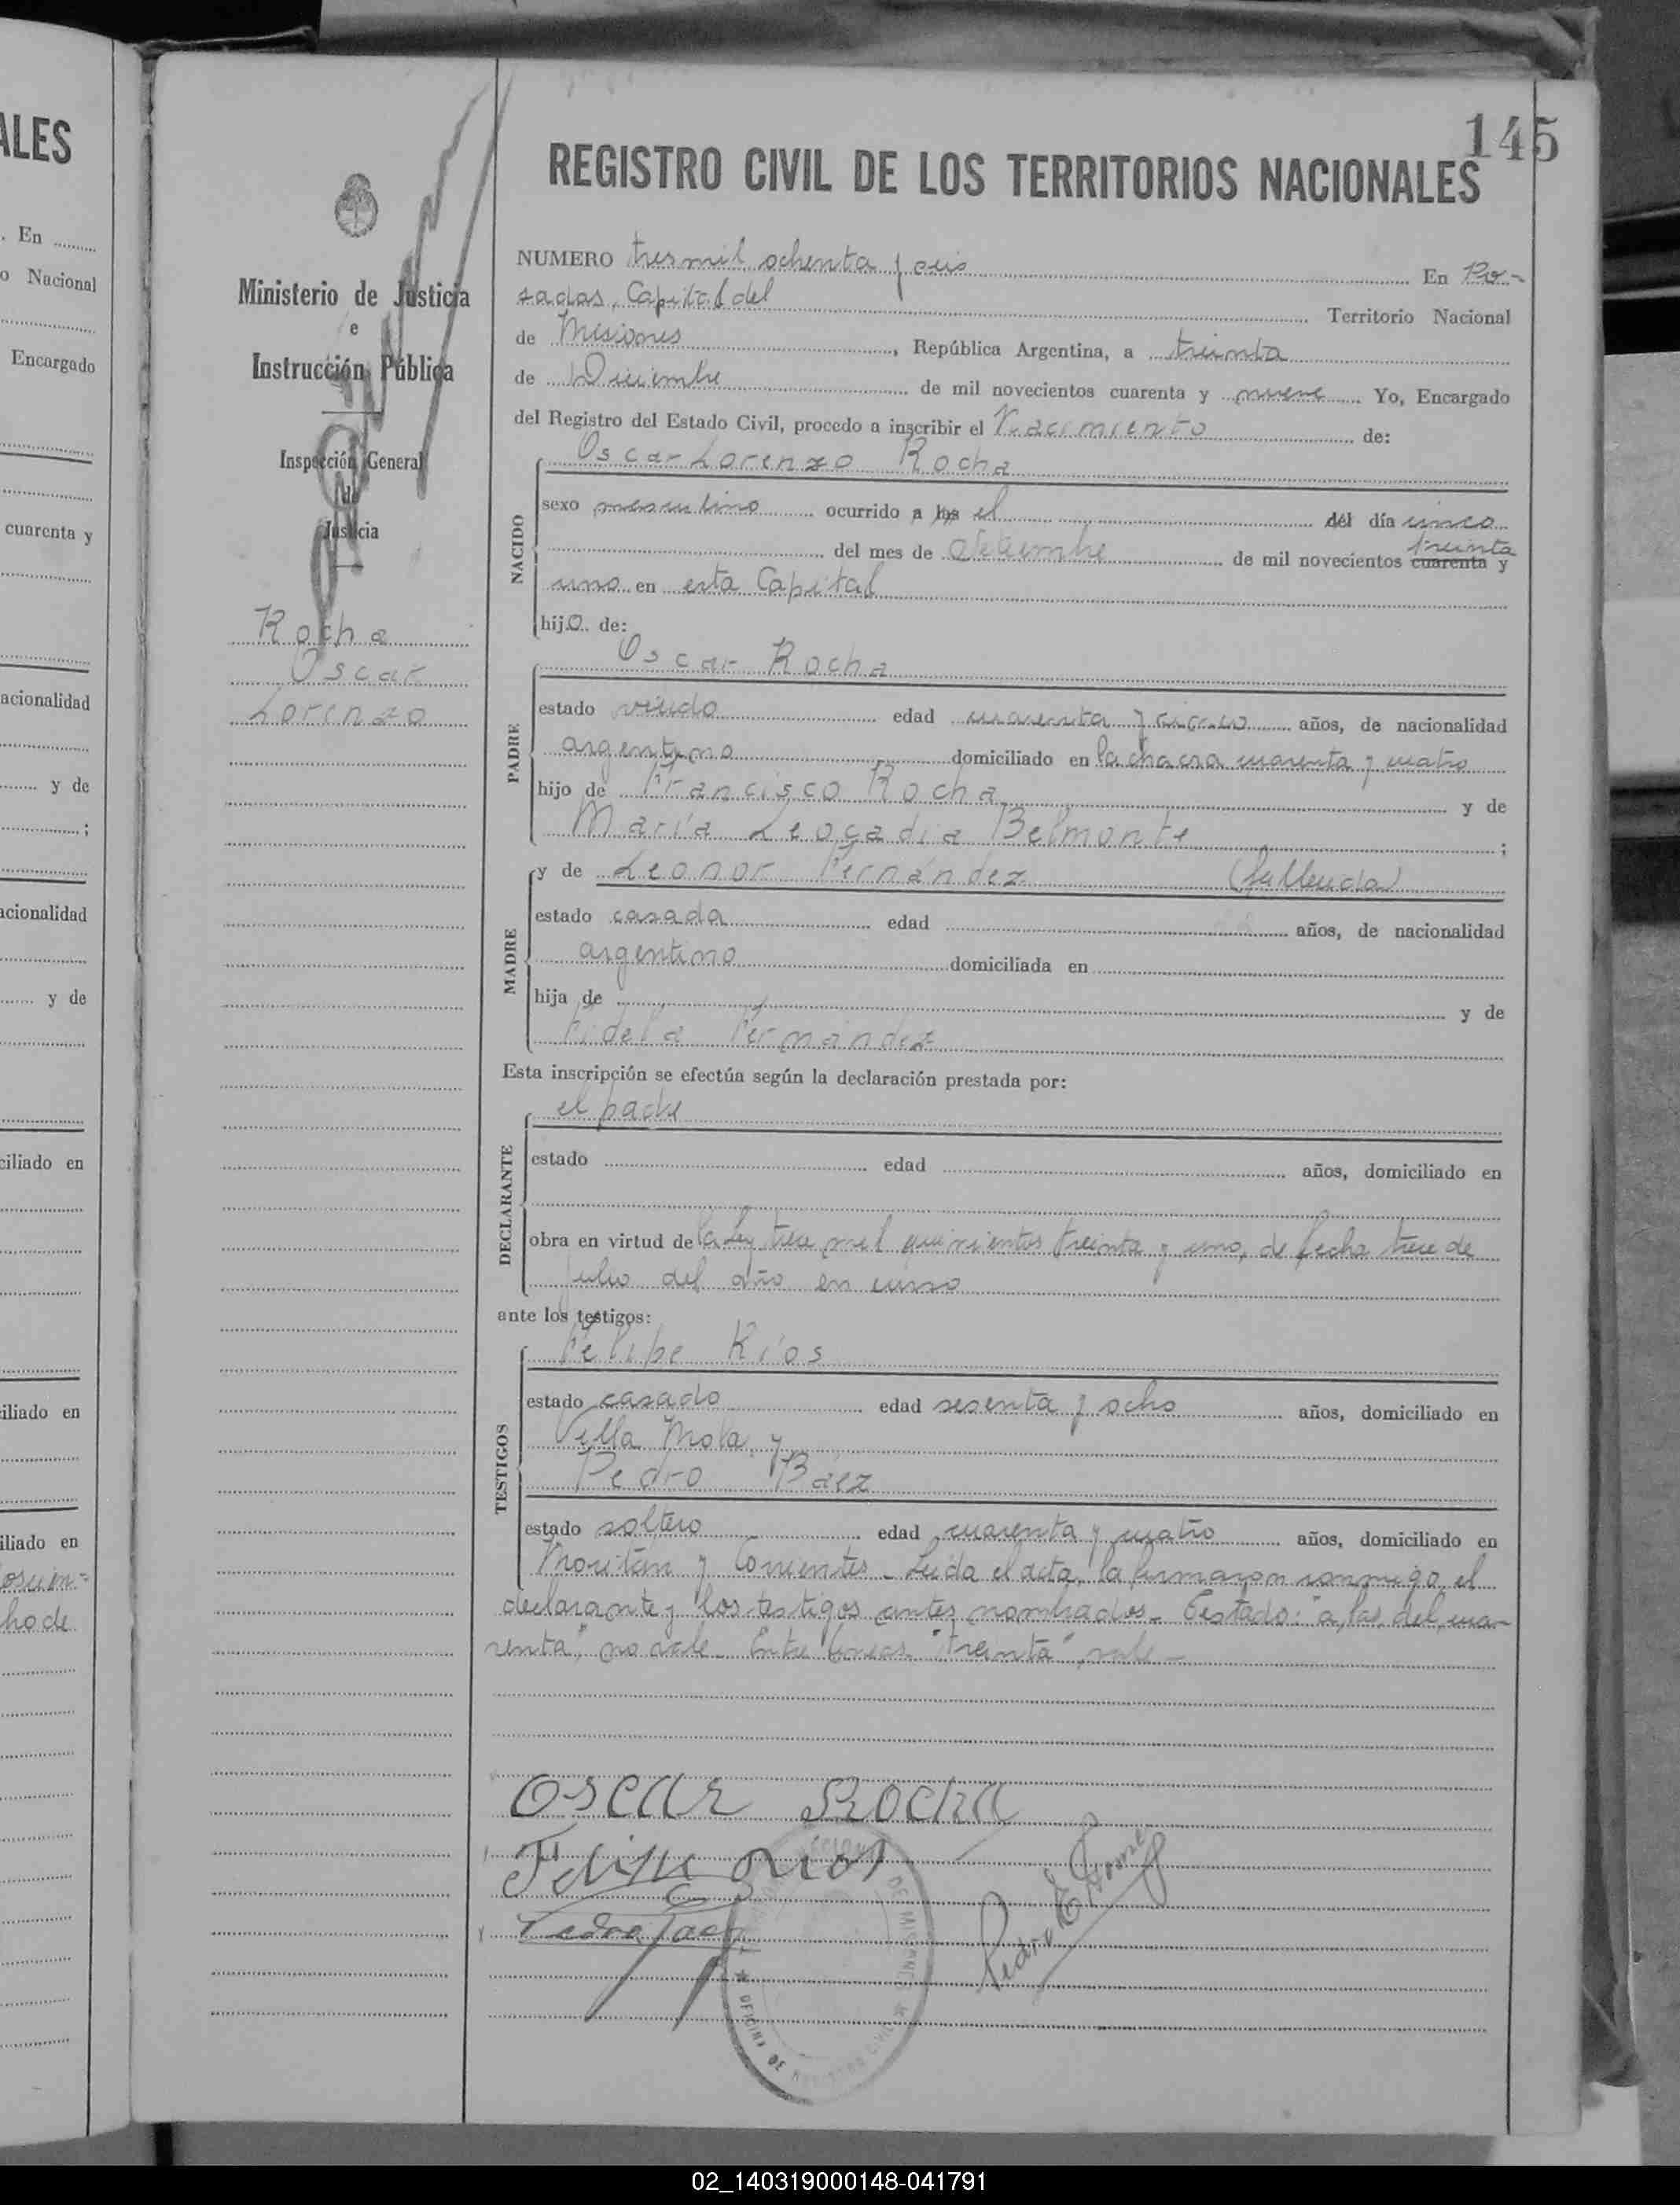 ALES
. En
o Nacional
Encargado
cuarenta y
acionalidad
y de
;
acionalidad
y de
ciliado en
iliado en
iliado en
ho de
145
REGISTRO CIVIL DE LOS TERRITORIOS NACIONALES
Ministerio de Justicia
e
Instrucción Pública
Inspección General
de
Justicia
Rocha
Oscar
Lorenzo
NUMERO tres mil ochenta y seis En Po-
sadas, Capital del Territorio Nacional
de Misiones, República Argentina, a treinta
de Diciembre de mil novecientos cuarenta y nueve Yo, Encargado
del Registro del Estado Civil, procedo a inscribir el Nacimiento de:
Oscar Lorenzo Rocha
NACIDO
sexo masculino ocurrido a las el del día cinco
treinta
del mes de Setiembre de mil novecientos cuarenta y
uno en esta Capital
hijo de:
PADRE
Oscar Rocha
estado viudo edad cuarenta y cinco años, de nacionalidad
argentino domiciliado en la chacra cuarenta y cuatro
hijo de Francisco Rocha y de
María Leocadia Belmonte ;
MADRE
y de Leonor Fernández (fallecida)
estado casada edad años, de nacionalidad
argentina domiciliada en
hija de y de
Fidela Fernández
Esta inscripción se efectúa según la declaración prestada por:
DECLARANTE
el padre
estado edad años, domiciliado en
obra en virtud de la Ley trece mil quinientos treinta y uno, de fecha trece de
julio del año en curso
ante los testigos:
TESTIGOS
Felipe Ríos
estado casado edad sesenta y ocho años, domiciliado en
Villa Mola y
Pedro Báez
estado soltero edad cuarenta y cuatro años, domiciliado en
y Corrientes - Leída el acta, la firmaron conmigo el
declarante y los testigos antes nombrados - Testado: "a, las, del, cua-
renta", no vale - Entre líneas "treinta", vale -
Oscar Rocha
Felipe Rios
Pedro Baez
DE MISIONES
★ OFICINA DE REGISTRO CIVIL ★
02_140319000148-041791